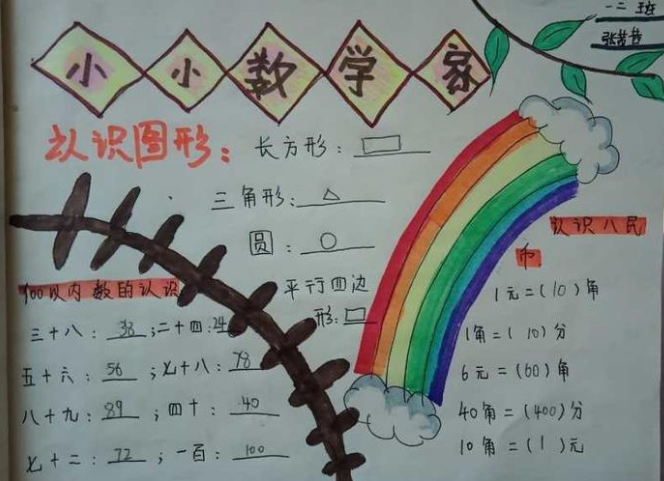 一二班
小小数学家
认识图形:
长方形:
三角形:
圆:
平行四边
形:
100以内数的认识
三十八:38;二十四:24
五十六:56;七十八:78
八十九:89;四十:40
七十二:72;一百:100
认识人民
币
1元=(10)角
1角=(10)分
6元=(60)角
40角=(400)分
10角=(1)元